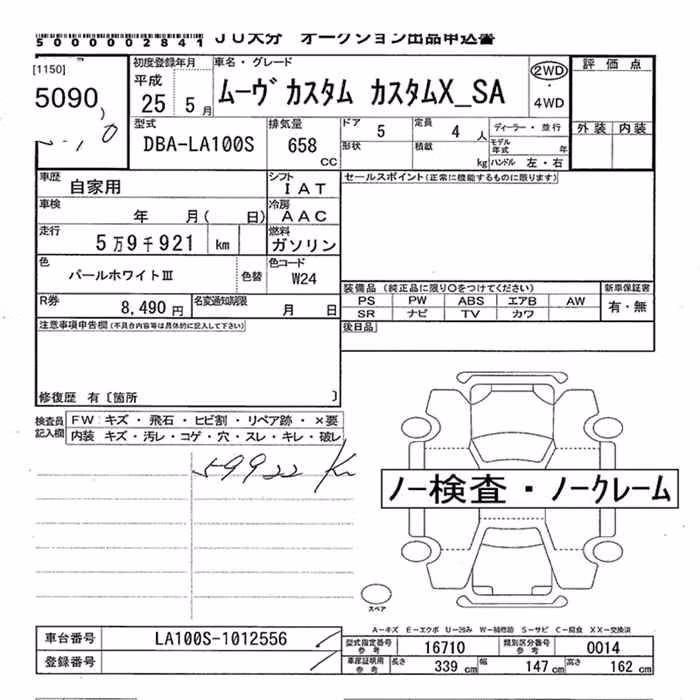 5000002841 JU大分 オークション出品申込書
[1150]
5090
初度登録年月
平成
25 5 月
車名・グレード
ムーヴ カスタム カスタムX_SA
2WD
・
4WD
評価点
外装 内装
型式
DBA-LA100S
排気量
658
CC
ドア 5
定員 4 人
形状
積載
kg
ディーラー・並行
モデル年式 年
ハンドル 左・右
車歴 自家用
シフト IAT
車検 年 月( 日)
冷房 AAC
走行 5万9千921 km
燃料 ガソリン
色 パールホワイトⅢ 色替
色コード W24
R券 8,490 円
名変通知期限 月 日
セールスポイント(正常に機能するものに限ります)
装備品(純正品に限り○をつけてください)
PS PW ABS エアB AW
SR ナビ TV カワ
新車保証書
有・無
後日品
注意事項申告欄(不具合内容等は具体的に記入して下さい)
修復歴 有〔箇所 〕
検査員記入欄
FW キズ・飛石・ヒビ割・リペア跡・×要
内装 キズ・汚レ・コゲ・穴・スレ・キレ・破レ
59922 Km
ノー検査・ノークレーム
スペア
A－キズ E－エクボ U－凹み W－補修跡 S－サビ C－腐食 XX－交換済
車台番号 LA100S-1012556
登録番号
型式指定番号 参考 16710
類別区分番号 参考 0014
車庫証明用 参考 長さ 339 cm 幅 147 cm 高さ 162 cm